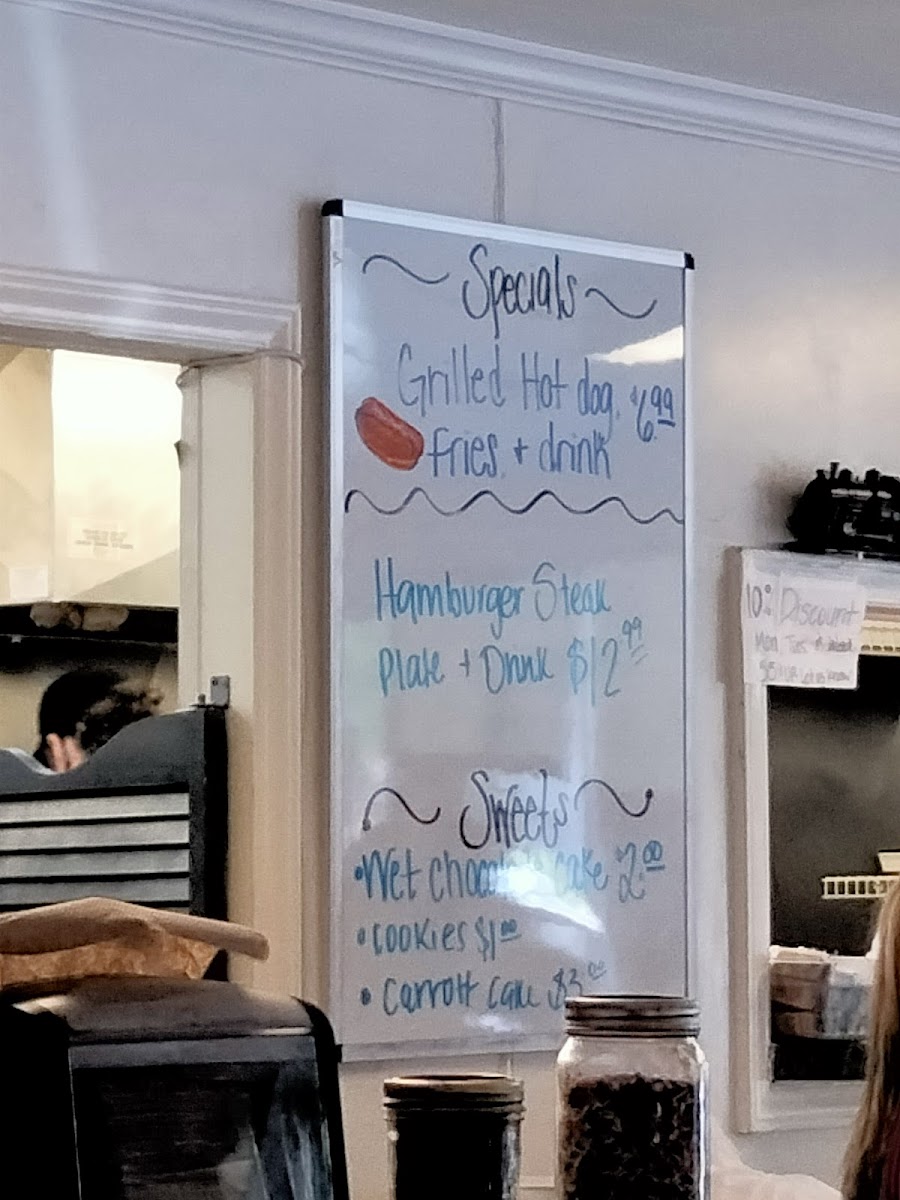 Specials
Grilled Hot dog, $6.99
fries, + drink
Hamburger Steak
Plate + Drink $12.99
Sweets
•Wet chocolate cake $2.00
•cookies $1.00
•Carrott cake $3.00
10% Discount
Mon, Tues